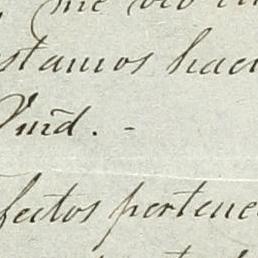 me veo
stamos hac
Vm̃d. -
fectos pertene